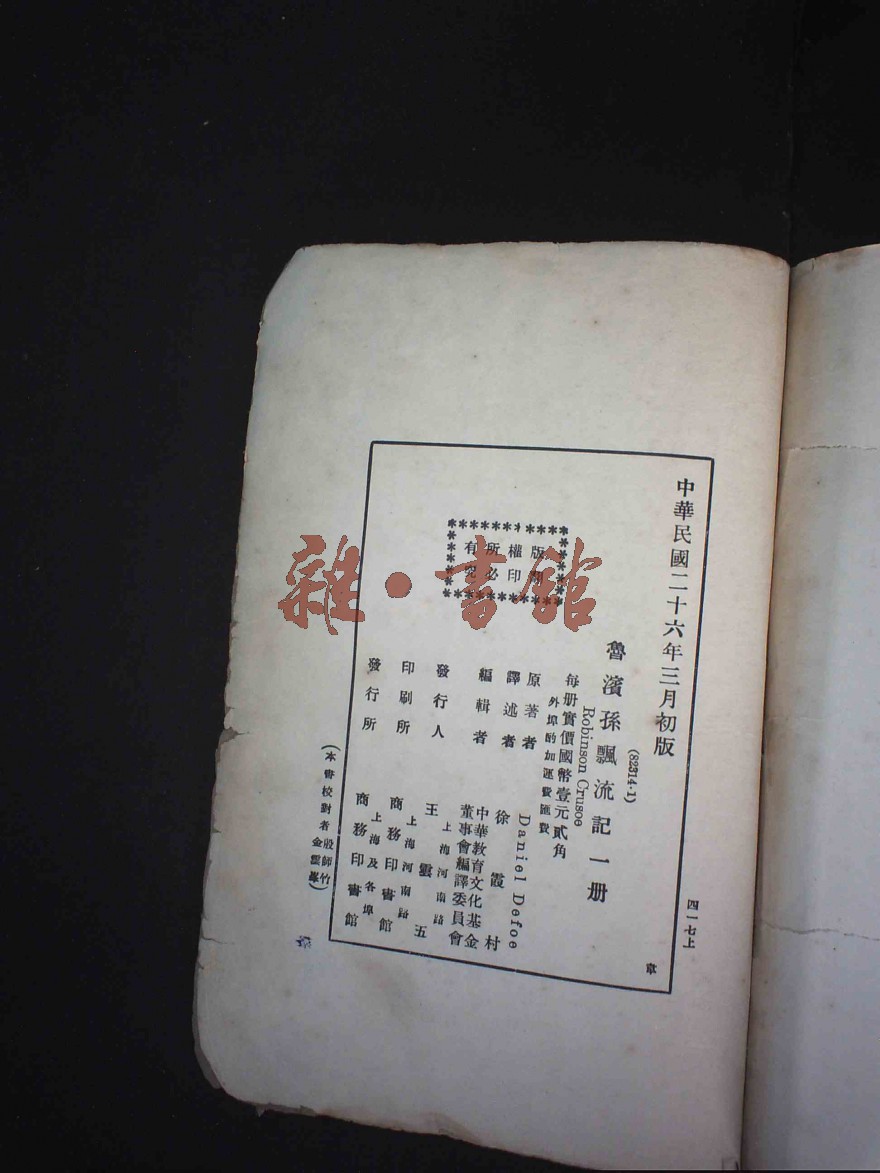 中華民國二十六年三月初版
四一七上
(82314·1)
魯濱孫飄流記一册
Robinson Crusoe
每册實價國幣壹元貳角
外埠酌加運費匯費
版權所有
翻印必究
原著者 Daniel Defoe
譯述者 徐霞村
編輯者 中華教育文化基金
董事會編譯委員會
發行人 王雲五
上海河南路
印刷所 商務印書館
上海河南路
發行所 商務印書館
上海及各埠
(本書校對者 殷師竹
金雲峯)
章
雜·書館